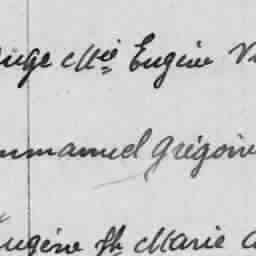 Ange Mie Eugène V
mmanuel Grégoire
Eugène Jh Marie